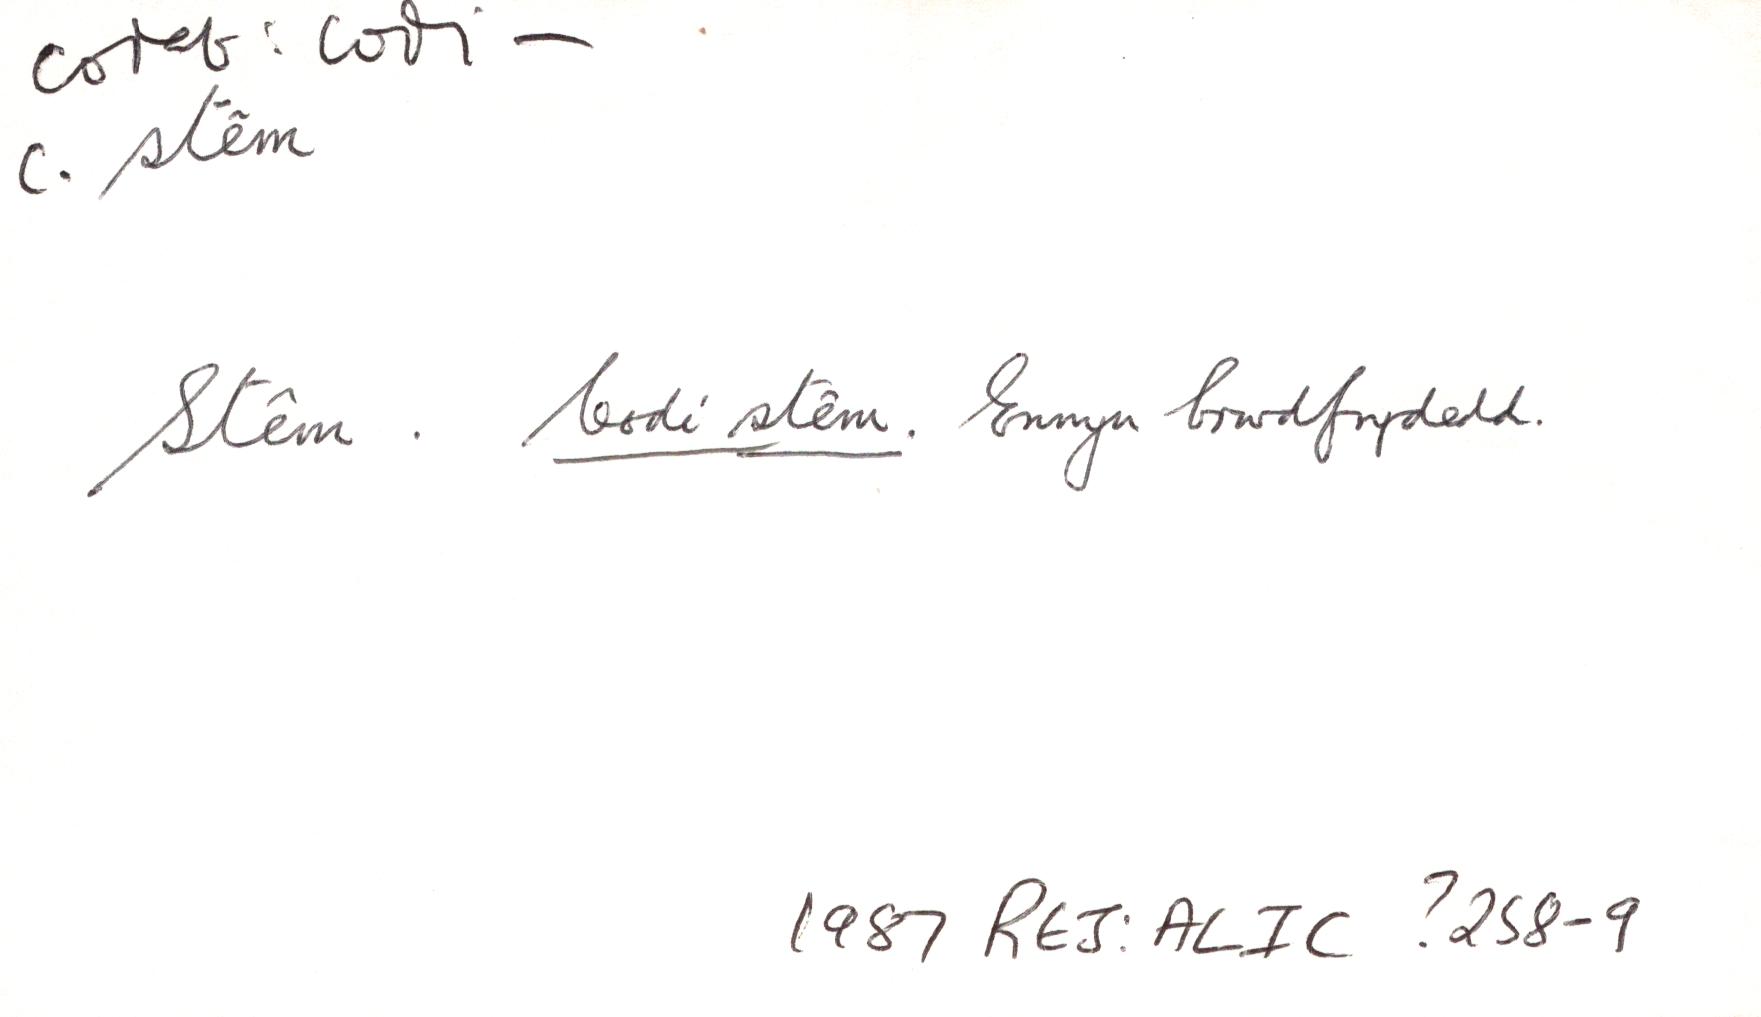 codaf: codi —
c. stêm
Stêm. Codi stêm. Ennyn brwdfrydedd.
1987 REJ: ALIC ?258-9